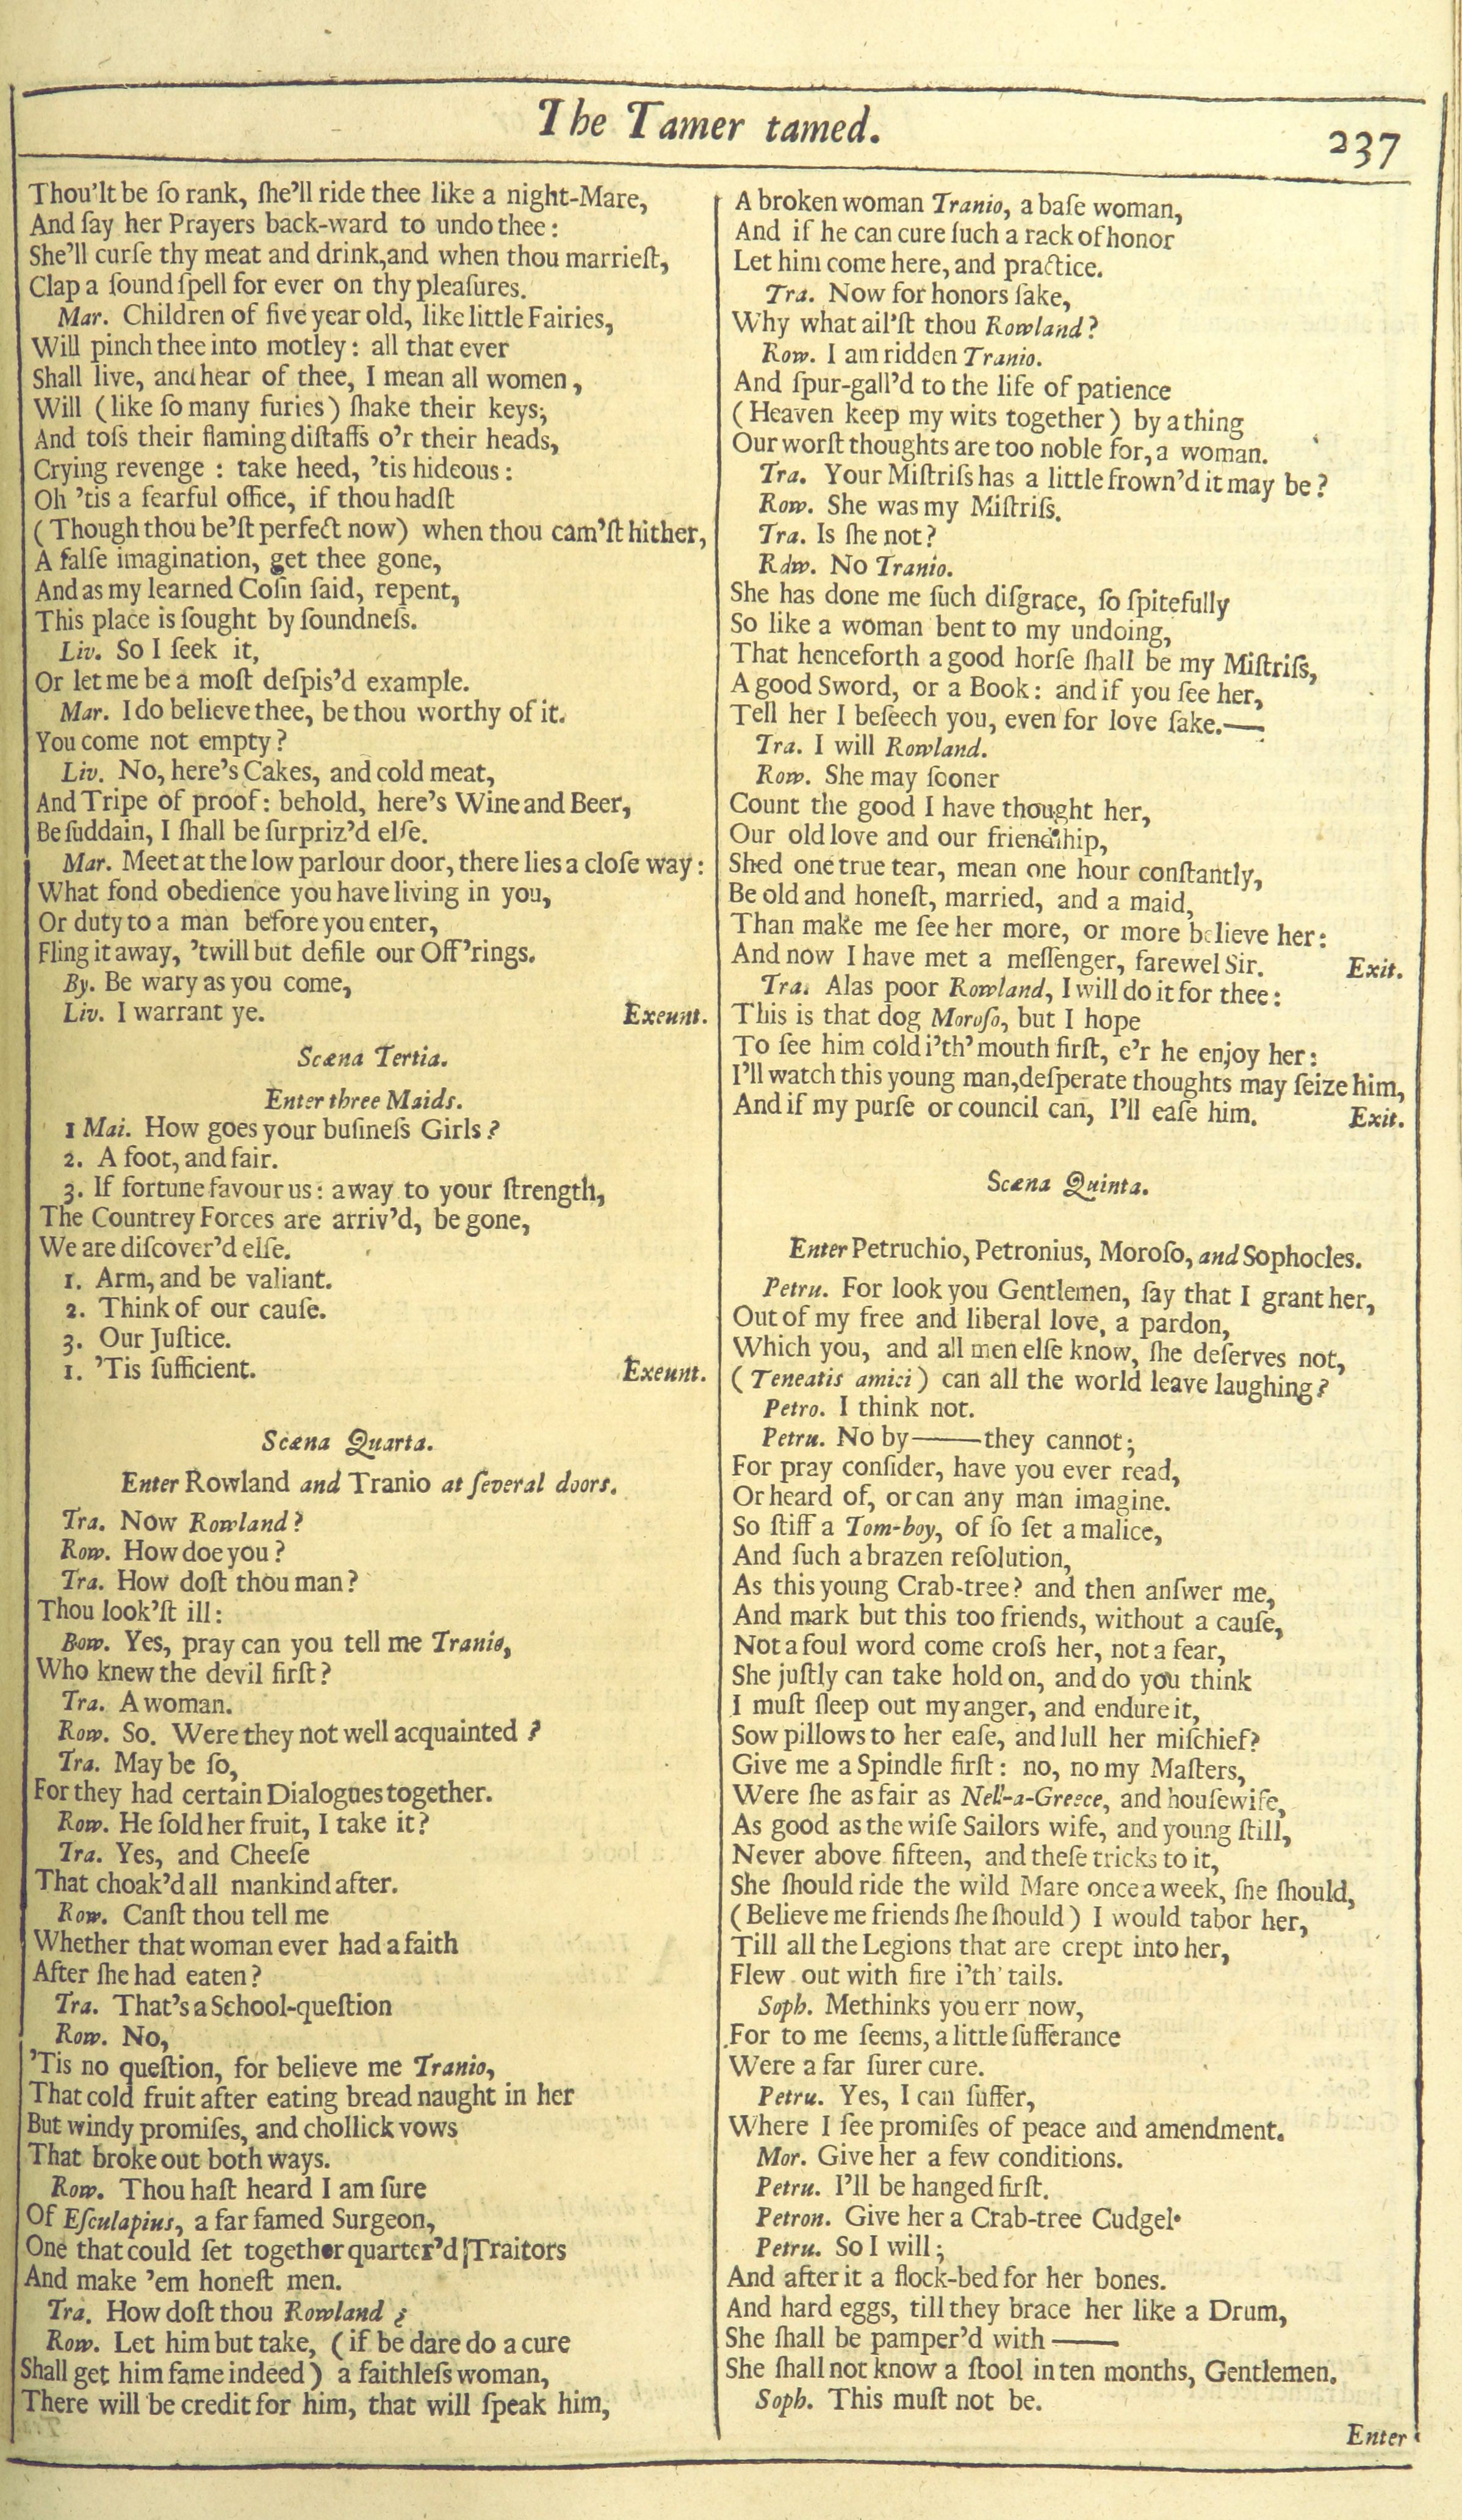 The Tamer tamed.
237
Thou'lt be ſo rank, ſhe'll ride thee like a night-Mare,
And ſay her Prayers back-ward to undo thee:
She'll curſe thy meat and drink,and when thou marrieſt,
Clap a ſound ſpell for ever on thy pleaſures.
Mar. Children of five year old, like little Fairies,
Will pinch thee into motley: all that ever
Shall live, and hear of thee, I mean all women,
Will (like ſo many furies) ſhake their keys;
And toſs their flaming diſtaffs o'r their heads,
Crying revenge : take heed, 'tis hideous:
Oh 'tis a fearful office, if thou hadſt
(Though thou be'ſt perfect now) when thou cam'ſt hither,
A falſe imagination, get thee gone,
And as my learned Coſin ſaid, repent,
This place is ſought by ſoundneſs.
Liv. So I ſeek it,
Or let me be a moſt deſpis'd example.
Mar. I do believe thee, be thou worthy of it.
You come not empty?
Liv. No, here's Cakes, and cold meat,
And Tripe of proof: behold, here's Wine and Beer,
Be ſuddain, I ſhall be ſurpriz'd elſe.
Mar. Meet at the low parlour door, there lies a cloſe way:
What fond obedience you have living in you,
Or duty to a man before you enter,
Fling it away, 'twill but defile our Off'rings.
By. Be wary as you come,
Liv. I warrant ye. Exeunt.
Scæna Tertia.
Enter three Maids.
1 Mai. How goes your buſineſs Girls?
2. A foot, and fair.
3. If fortune favour us: away to your ſtrength,
The Countrey Forces are arriv'd, be gone,
We are diſcover'd elſe.
1. Arm, and be valiant.
2. Think of our cauſe.
3. Our Juſtice.
1. 'Tis ſufficient. Exeunt.
Scæna Quarta.
Enter Rowland and Tranio at ſeveral doors.
Tra. Now Rowland?
Row. How doe you?
Tra. How doſt thou man?
Thou look'ſt ill:
Bow. Yes, pray can you tell me Tranio,
Who knew the devil firſt?
Tra. A woman.
Row. So. Were they not well acquainted?
Tra. May be ſo,
For they had certain Dialogues together.
Row. He ſold her fruit, I take it?
Tra. Yes, and Cheeſe
That choak'd all mankind after.
Row. Canſt thou tell me
Whether that woman ever had a faith
After ſhe had eaten?
Tra. That's a School-queſtion
Row. No,
'Tis no queſtion, for believe me Tranio,
That cold fruit after eating bread naught in her
But windy promiſes, and chollick vows
That broke out both ways.
Row. Thou haſt heard I am ſure
Of Eſculapius, a far famed Surgeon,
One that could ſet together quarter'd Traitors
And make 'em honeſt men.
Tra. How doſt thou Rowland?
Row. Let him but take, (if be dare do a cure
Shall get him fame indeed) a faithleſs woman,
There will be credit for him, that will ſpeak him,
A broken woman Tranio, a baſe woman,
And if he can cure ſuch a rack of honor
Let him come here, and practice.
Tra. Now for honors ſake,
Why what ail'ſt thou Rowland?
Row. I am ridden Tranio.
And ſpur-gall'd to the life of patience
(Heaven keep my wits together) by a thing
Our worſt thoughts are too noble for, a woman.
Tra. Your Miſtriſs has a little frown'd it may be?
Row. She was my Miſtriſs.
Tra. Is ſhe not?
Row. No Tranio.
She has done me ſuch diſgrace, ſo ſpitefully
So like a woman bent to my undoing,
That henceforth a good horſe ſhall be my Miſtriſs,
A good Sword, or a Book: and if you ſee her,
Tell her I beſeech you, even for love ſake.——
Tra. I will Rowland.
Row. She may ſooner
Count the good I have thought her,
Our old love and our friendſhip,
Shed one true tear, mean one hour conſtantly,
Be old and honeſt, married, and a maid,
Than make me ſee her more, or more believe her:
And now I have met a meſſenger, farewel Sir. Exit.
Tra. Alas poor Rowland, I will do it for thee:
This is that dog Moroſo, but I hope
To ſee him cold i'th' mouth firſt, e'r he enjoy her:
I'll watch this young man,deſperate thoughts may ſeize him,
And if my purſe or council can, I'll eaſe him. Exit.
Scæna Quinta.
Enter Petruchio, Petronius, Moroſo, and Sophocles.
Petru. For look you Gentlemen, ſay that I grant her,
Out of my free and liberal love, a pardon,
Which you, and all men elſe know, ſhe deſerves not,
(Teneatis amici) can all the world leave laughing?
Petro. I think not.
Petru. No by——they cannot;
For pray conſider, have you ever read,
Or heard of, or can any man imagine.
So ſtiff a Tom-boy, of ſo ſet a malice,
And ſuch a brazen reſolution,
As this young Crab-tree? and then anſwer me,
And mark but this too friends, without a cauſe,
Not a foul word come croſs her, not a fear,
She juſtly can take hold on, and do you think
I muſt ſleep out my anger, and endure it,
Sow pillows to her eaſe, and lull her miſchief?
Give me a Spindle firſt: no, no my Maſters,
Were ſhe as fair as Nell-a-Greece, and houſewife,
As good as the wiſe Sailors wife, and young ſtill,
Never above fifteen, and theſe tricks to it,
She ſhould ride the wild Mare once a week, ſhe ſhould,
(Believe me friends ſhe ſhould) I would tabor her,
Till all the Legions that are crept into her,
Flew out with fire i'th' tails.
Soph. Methinks you err now,
For to me ſeems, a little ſufferance
Were a far ſurer cure.
Petru. Yes, I can ſuffer,
Where I ſee promiſes of peace and amendment.
Mor. Give her a few conditions.
Petru. I'll be hanged firſt.
Petron. Give her a Crab-tree Cudgel.
Petru. So I will;
And after it a flock-bed for her bones.
And hard eggs, till they brace her like a Drum,
She ſhall be pamper'd with——
She ſhall not know a ſtool in ten months, Gentlemen.
Soph. This muſt not be.
Enter